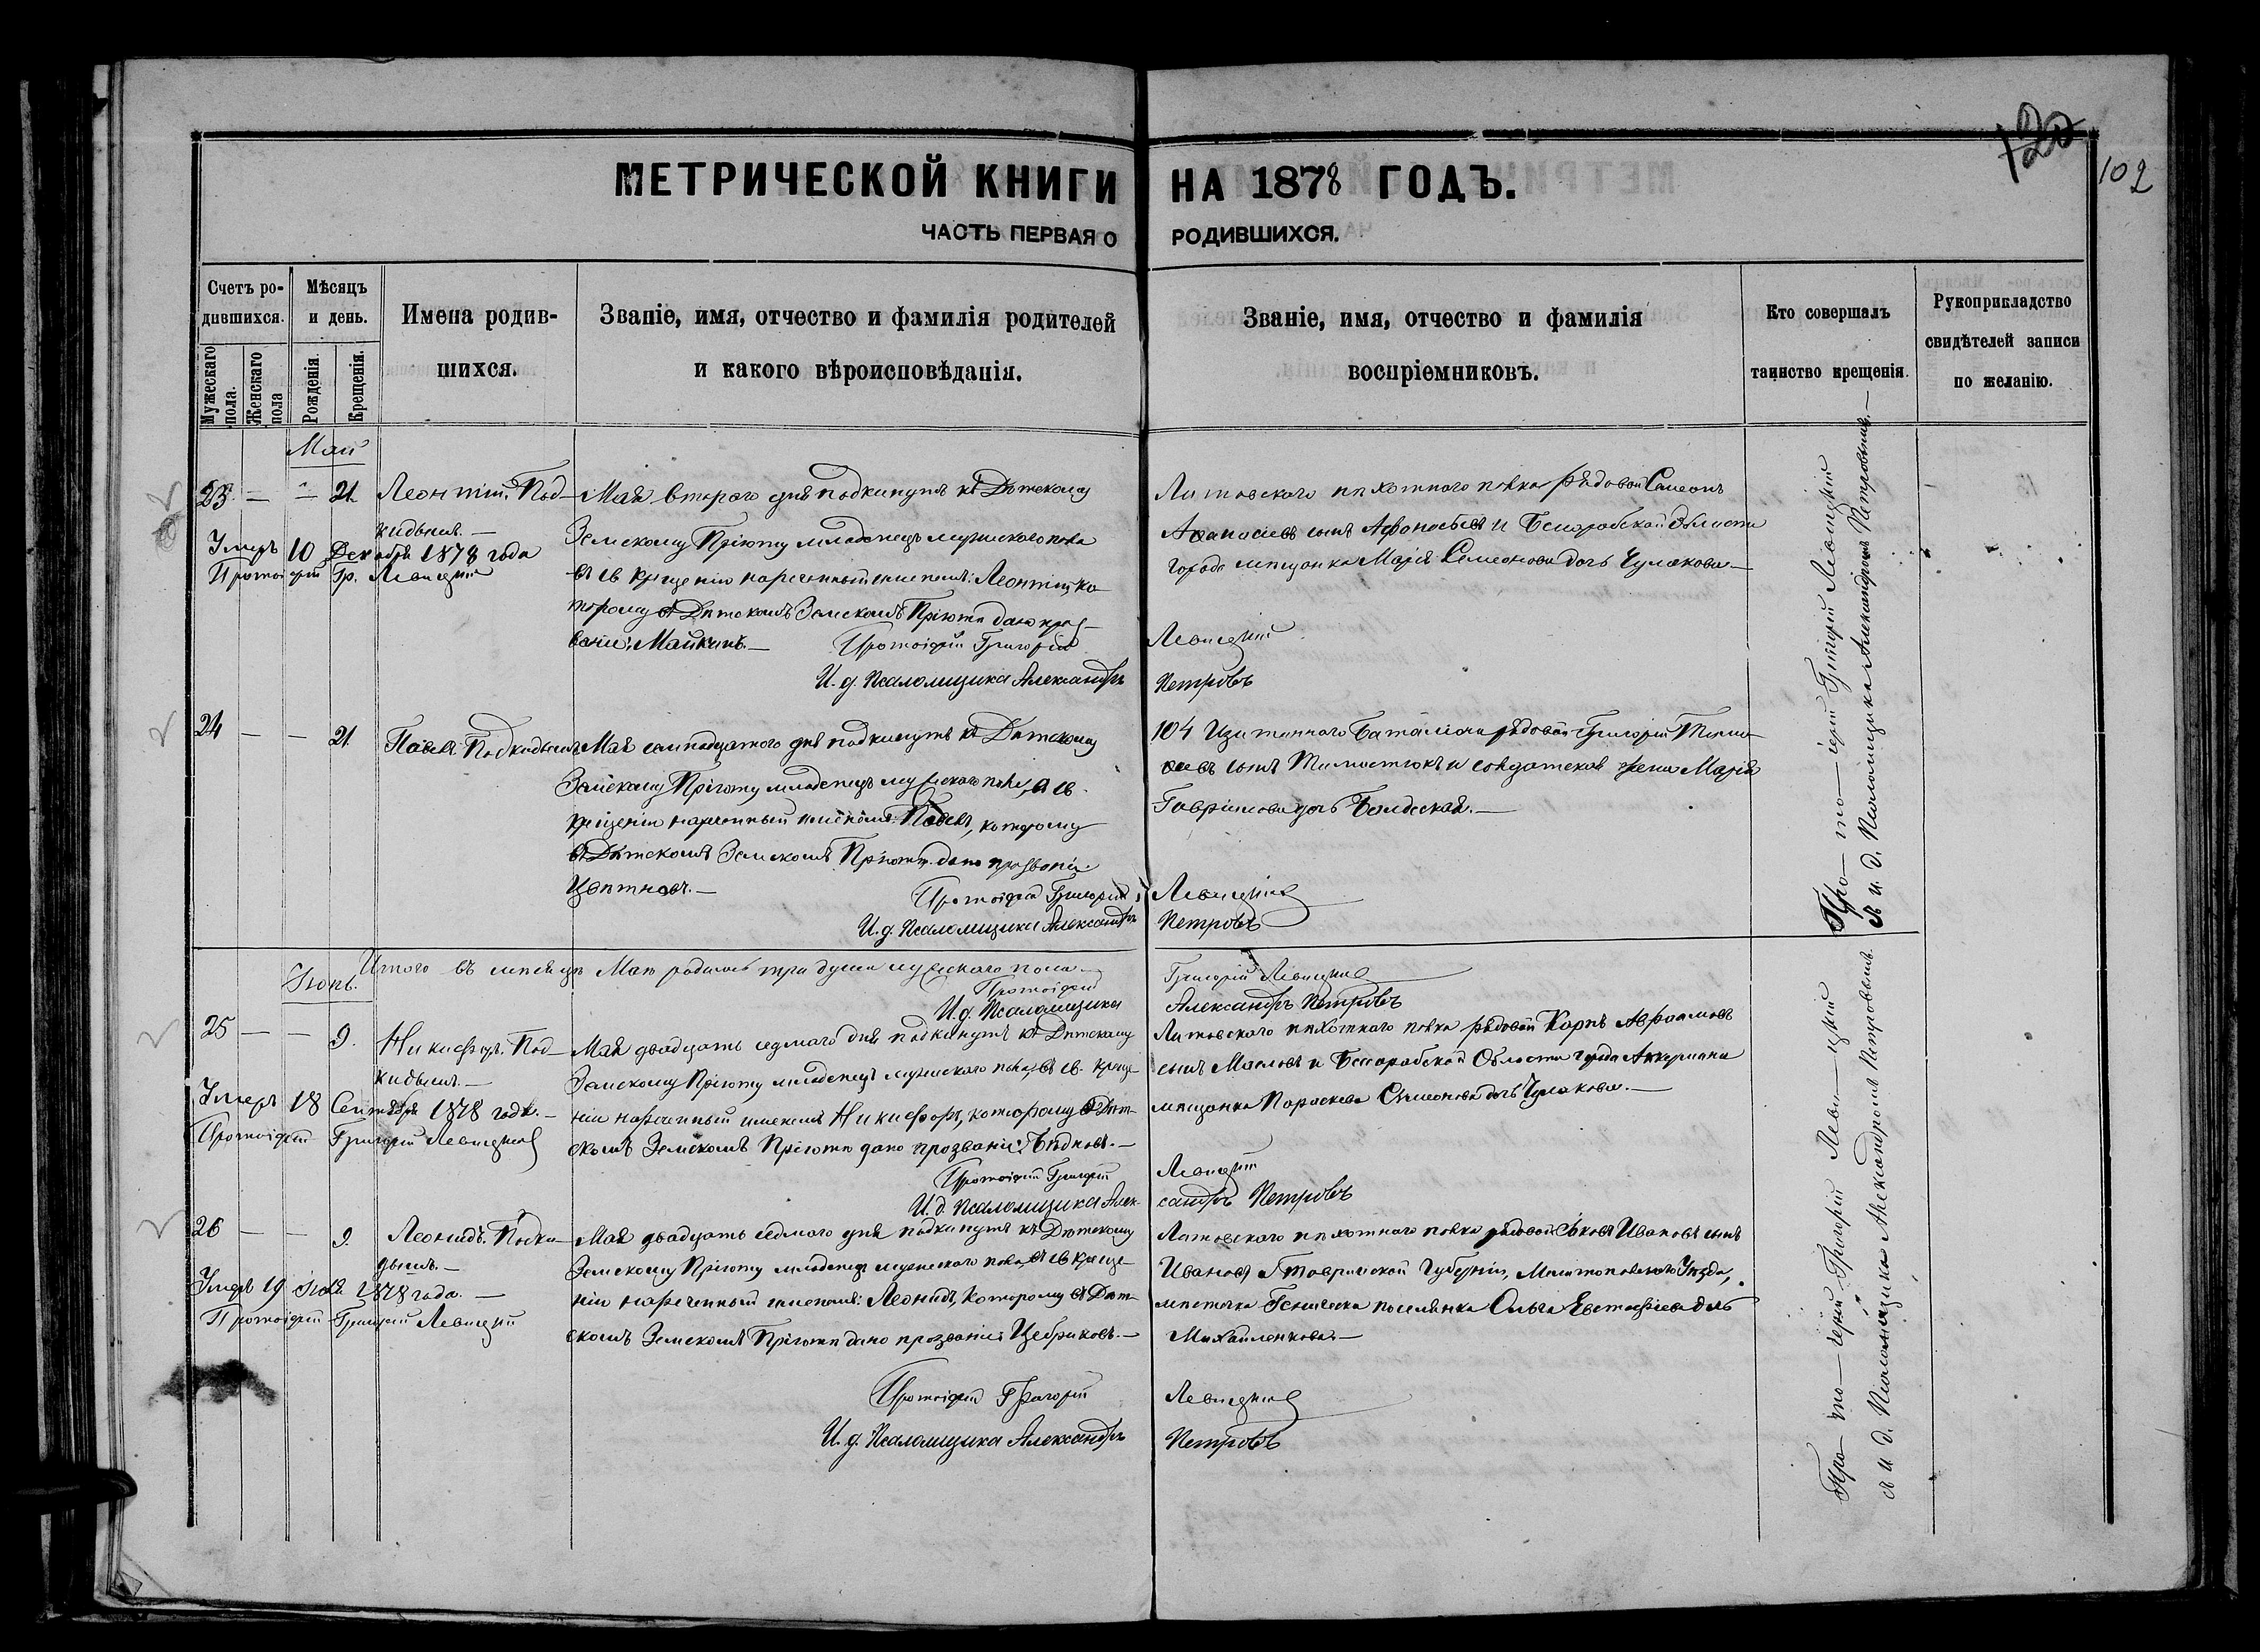 120
102
МЕТРИЧЕСКОЙ КНИГИ НА 1878 ГОДЪ.
ЧАСТЬ ПЕРВАЯ О РОДИВШИХСЯ.
Счетъ ро-
дившихся.
Мужескаго
пола.
Женскаго
пола
Мѣсяцъ
и день.
Рожденія.
Крещенія.
Имена родив-
шихся.
Званіе, имя, отчество и фамилія родителей
и какого вѣроисповѣданія.
Званіе, имя, отчество и фамилія
воспріемниковъ.
Кто совершалъ
таинство крещенія.
Рукоприкладство
свидѣтелей записи
по желанію.
Май
23. — — 21. Леонтій. Под-
кидышъ. —
Умеръ 10 Декабря 1878 года
Протоіерей Гр. Левицкій
Мая втораго дня подкинутъ къ Дѣтскому
Земскому Пріюту младенецъ мужескаго пола
въ св крещеніи нареченный именемъ: Леонтій, ко-
торому въ Дѣтскомъ Земскомъ Пріютѣ дано проз-
ваніе: Майкинъ. —
Протоіерей Григорій Левицкій
И. д. Псаломщика Александръ Петровъ
Литовскаго пѣхотнаго полка рядовой Симеонъ
Аѳанасіевъ сынъ Афонасьевъ и Бессарабской Области
города мѣщанка Марія Семеонова дочь Чулакова —
24 — — 21. Павелъ. Подкидышъ
Мая семнадцатого дня подкинутъ къ Дѣтскому
Земскому Пріюту младенецъ мужескаго пола, въ св.
крещеніи нареченный именемъ: Павелъ, которому
въ Дѣтскомъ Земскомъ Пріютѣ дано прозваніе
Цвѣтковъ. —
Протоіерей Григорій Левицкій
И. д. Псаломщика Александръ Петровъ
104 Баталіона рядовой Григорій
сынъ и солдатская жена Марія
Гавріилова дочь
Про—то—іерей Григорій Левицкій
съ и. д. Псаломщика Александромъ Петровымъ. —
Итого въ мѣсяцѣ Маѣ родилось три души мужескаго пола —
Протоіерей Григорій Левицкій
И. д. Псаломщика Александръ Петровъ
Іюнь.
25 — — 9. Никифоръ. Под-
кидышъ. —
Умеръ 18 Сентября 1878 года. —
Протоіерей Григорій Левицкій
Мая двадцать седмаго дня подкинутъ къ Дѣтскому
Земскому Пріюту младенецъ мужескаго пола, въ св. креще-
ніи нареченный именемъ Никифоръ, которому въ Дѣт-
скомъ Земскомъ Пріютѣ дано прозваніе: Бѣдновъ. —
Протоіерей Григорій Левицкій
И. д. Псаломщика Алек-
сандръ Петровъ
Литовскаго пѣхотнаго полка рядовой Карпъ Авраамовъ
сынъ Масловъ и Бессарабской Области города Аккермана
мѣщанка Параскева Симеонова дочь Чулакова. —
26 — — 9. Леонидъ. Подки-
дышъ. —
Умеръ 19 Іюля 1878 года. —
Протоіерей Григорій Левицкій
Мая двадцать седмого дня подкинутъ къ Дѣтскому
Земскому Пріюту младенецъ мужескаго пола, въ св креще-
ніи нареченный именемъ: Леонидъ, которому въ Дѣт-
скомъ Земскомъ Пріютѣ дано прозваніе Цебриковъ. —
Протоіерей Григорій Левицкій
И. д. Псаломщика Александръ Петровъ
Литовскаго пѣхотнаго полка рядовой Яковъ Ивановъ сынъ
Ивановъ Таврической Губерніи, Мелитопольскаго Уѣзда,
мѣстечка Геническа поселянка Ольга Евстафіева дочь
Михайленкова. —
Про—то—іерей Григорій Леви—цкій
съ и. д. Псаломщика Александромъ Петровымъ.